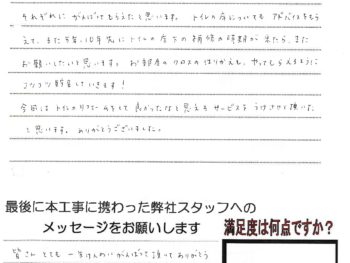 それぞれに がんばってもらえたと思います。トイレの床についても アドバイスをもら
えて、また5年、10年先に トイレの床下の補修の時期が来たら、また
お願いしたいと思います。お部屋のクロスのはりかえも、やってもらえるように
コツコツ貯金していきます!
今回は トイレのリフォームをして 良かったなと思えるサービスを うけさせて頂いた
と思います。ありがとうございました。
最後に本工事に携わった弊社スタッフへの
メッセージをお願いします 満足度は何点ですか?
皆さん とても 一生けんめい がんばって頂いて ありがとう